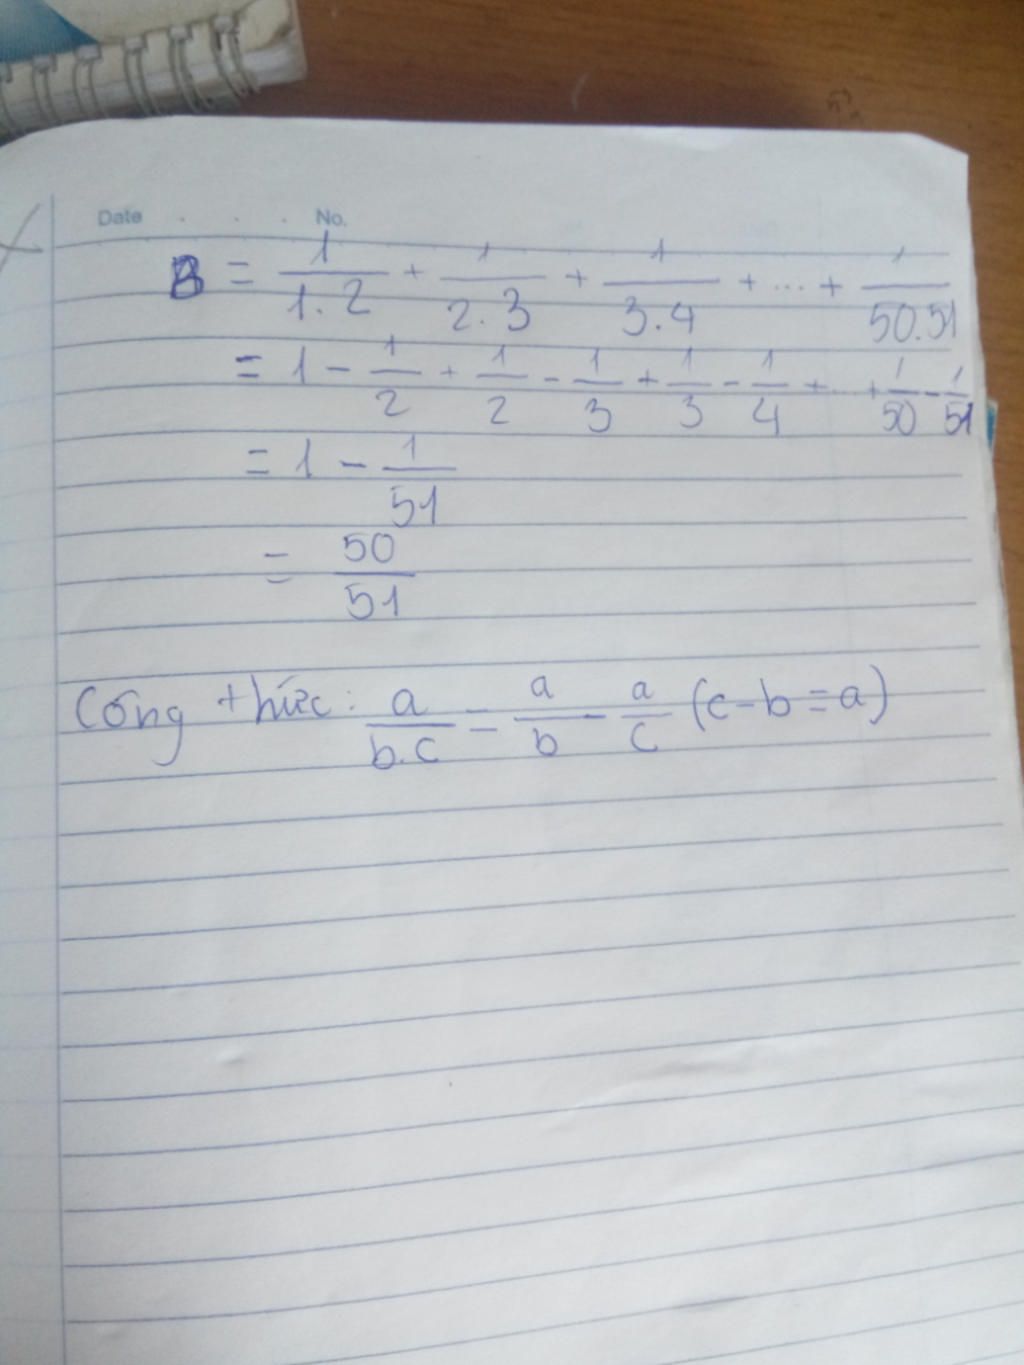 Date . . . No.
B = 1/1.2 + 1/2.3 + 1/3.4 + ... + 1/50.51
= 1 - 1/2 + 1/2 - 1/3 + 1/3 - 1/4 + ... + 1/50 - 1/51
= 1 - 1/51
= 50/51
Công thức: a/b.c = a/b - a/c (c-b=a)